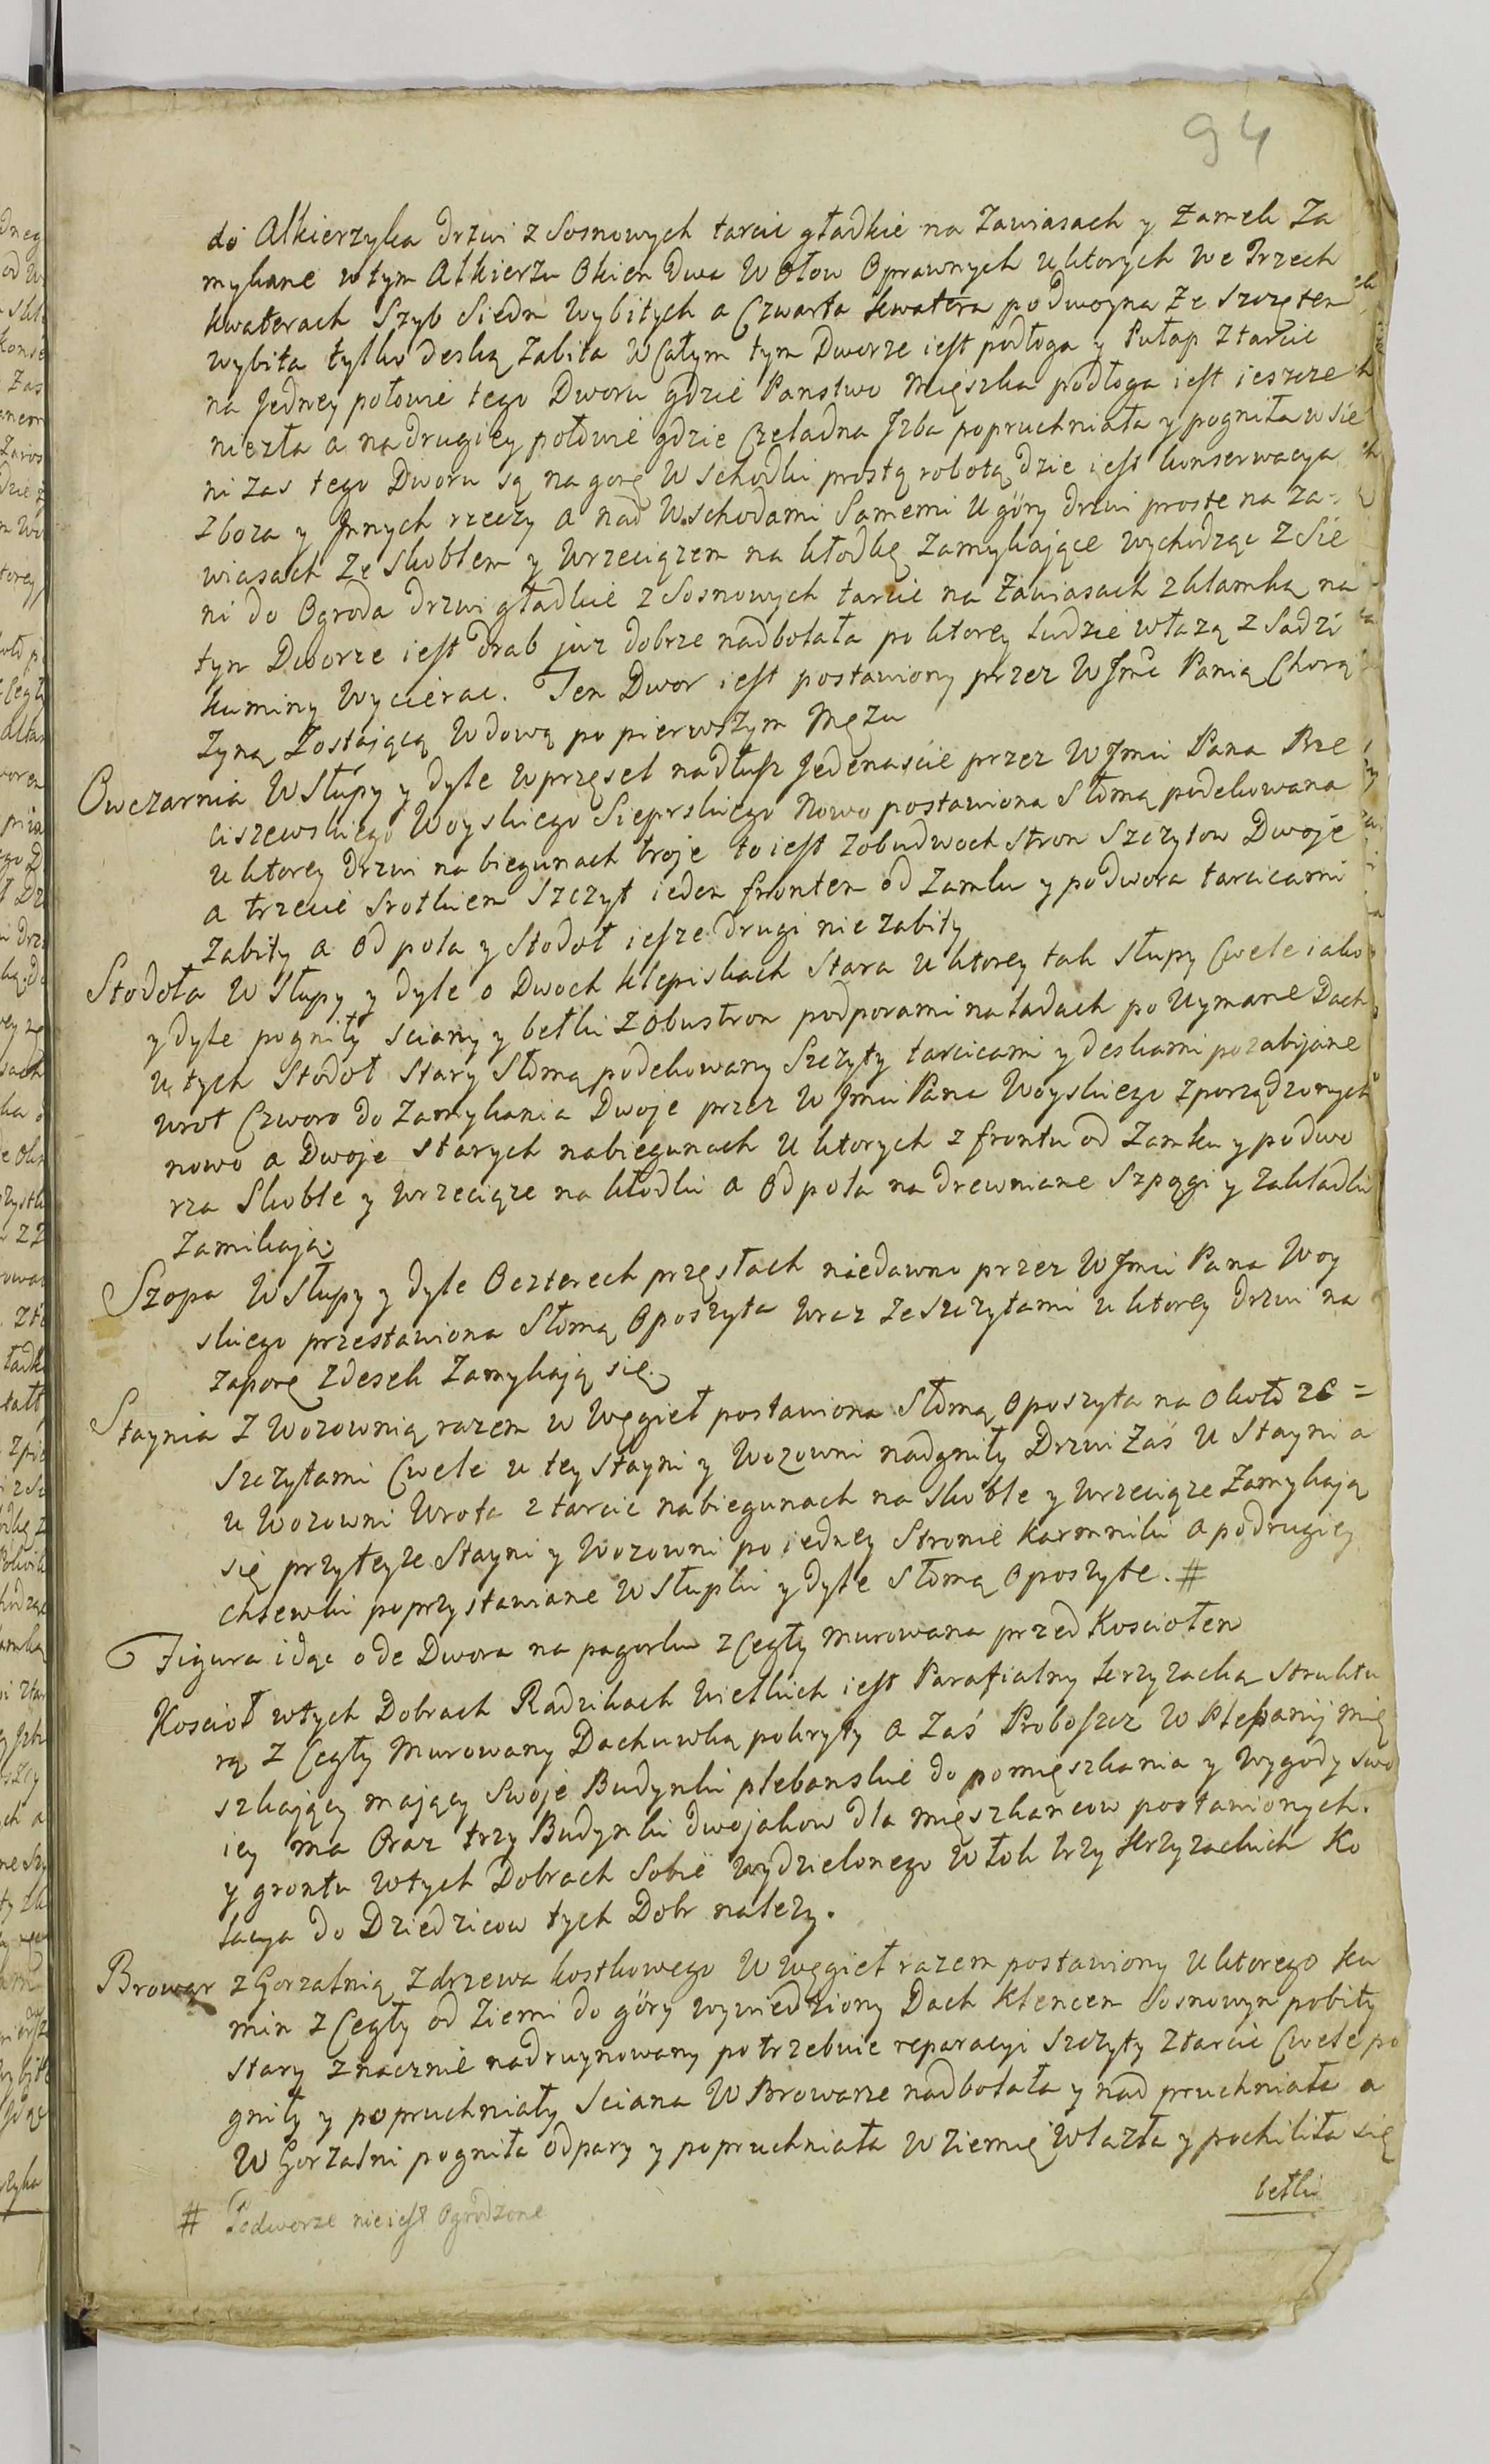 94
do Alkierzyka drzwi z Sosnowych tarcic gładkie na Zawiasach y Zamek Za
mykane w tym Alkierzu Okien Dwa W Ołow Oprawnych u ktorych We Trzech
kwaterach Szyb Siedm Wybitych a Czwarta kwatera podwoyna Ze szczętem
wybita tylko deską Zabita W Całym tym Dworze iest podłoga y Pułap z tarcic
na Jedney połowie tego Dworu gdzie Panstwo Mięszka podłoga iest ieszcze
niezła a na drugiey połowie gdzie Czeladna Jzba popruchniała y pogniła w Sie
ni zas tego Dworu są na gorę W schodki prostą robotą dzie iest konserwacya
Zboza y Jnnych rzeczy a nad W schodami Samemi U góry drzwi proste na za=
wiasach Ze Skoblem y Wrzeciązem na kłodkę Zamykające wychodząc Z Sie
ni do Ogroda drzwi gładkie z Sosnowych tarcic na Zawiasach z klamką na
tym Dworze iest drab juz dobrze nadbotała po ktorey ludzie włazą z Sadzi
kuminy Wycierac. Ten Dwor iest postawiony przez WJmć Panią Chorą
Zyną Zostającą Wdową po pierwszym Męzu
Owczarnia W Słupy y dyle W przęseł nadłusz Jedenaście przez WJmci Pana Rze
ciszewskiego Woyskiego Sieprskiego Nowo postawiona Słomą podekowana
u ktorey drzwi na biegunach troje to iest z obudwoch stron Szczytow Dwoje
a trzecie Srotkiem Szczyt ieden frontem od Zamku y podwora tarcicami
zabity a Od pola y Stodoł iesze drugi nie zabity
Stodoła W Słupy y dyle o Dwoch klepiskach Stara u ktorey tak Słupy Cwele iako
y dyle pogniły sciany y belki z obustron podporami na ladach po Uymane Dach
u tych Stodoł Stary Słomą podekowany Szczyty tarcicami y deskami pozabijane
wrot Czworo do Zamykania Dwoje przez WJmci Pana Woyskiego Zporządzonych
nowo a Dwoje starych nabiegunach U ktorych z frontu od Zamku y podwo
rza Skoble y Wrzeciąze na kłodki a Od pola na drewniane Szpągi y zakładki
Zamikają
Szopa W Słupy y dyle Ocztere​ch przęsłach niedawno przez WJmci Pana Woy
skiego przestawiona Słomą Oposzyta Wraz ze szczytami u ktorey drzwi na
zaporę zdesek Zamykają się
Staynia Z Wozownią razem w Węgieł postawiona Słomą Oposzyta na Okoł ze =
Szczytami Cwele u tey stayni y Wozowni nadgniły Drzwi Zaś U Stayni a
u Wozowni Wrota z tarcic nabiegunach na skoble y Wrzeciąze Zamykają
się przyteyze Stayni y Wozowni po iedney Stronie karmniki a podrugiey
chlewki poprzystawiane W Słupki y dyle Słomą Oposzyte. #
Figura idąc ode Dwora na pagorku z Cegły murowana przed Kosciołem
Kosciół wtych Dobrach Radzikach Wielkich iest Parafialny krzyzacką struktu
rą z Cegły Murowany Dachuwką pokryty a Zaś Proboszcz W Plebanij mię
szkający mający Swoje Budynki plebanskie do pomięszkania y Wygody swo
iey ma Oraz trzy Budynki dwojakow dla mięszkancow postawionych.
y grontu wtych Dobrach Sobie wydzielonego Włok trzy krzyzackich Ko
lacya do Dziedzicow tych Dobr nalezy.
Browar z Gorzalnią z drzewa kostkowego W węgieł razem postawiony U ktorego ku
min z Cegły od Ziemi do góry wywiedziony Dach klencem Sosnowym pobity
stary Znacznie nadruynowany potrzebuie reparacyi Szczyty z tarcic Cwele po
gniły y popruchniały Sciana W Browarze nadbotała y nad pruchniała a
W Gorzalni pogniła odpary y popruchniała W ziemię Wlazła y pochiliła się
belki
# Podworze nie iest Ogrodzone